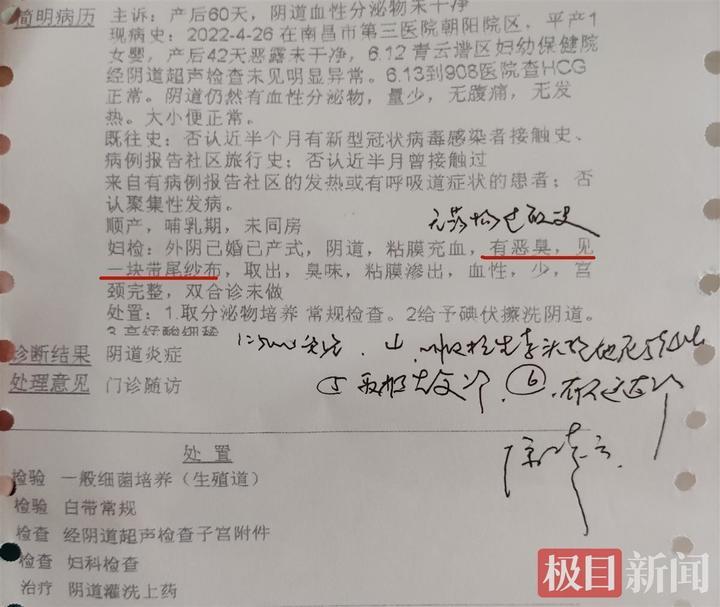 简明病历
主诉：产后60天，阴道血性分泌物未干净
现病史：2022-4-26 在南昌市第三医院朝阳院区，平产1
女婴，产后42天恶露未干净，6.12 青云谱区妇幼保健院
经阴道超声检查未见明显异常。6.13到908医院查HCG
正常。阴道仍然有血性分泌物，量少，无腹痛，无发
热。大小便正常。
既往史：否认近半个月有新型冠状病毒感染者接触史、
病例报告社区旅行史；否认近半月曾接触过
来自有病例报告社区的发热或有呼吸道症状的患者；否
认聚集性发病。
顺产，哺乳期，未同房
无药物过敏史
妇检：外阴已婚已产式，阴道，粘膜充血，有恶臭，见
一块带尾纱布，取出，臭味，粘膜渗出，血性，少，宫
颈完整，双合诊未做
处置：1.取分泌物培养 常规检查。2给予碘伏擦洗阴道。
3.高锰酸钾稀
诊断结果 阴道炎症
处理意见 门诊随访
处置
检验 一般细菌培养（生殖道）
检验 白带常规
检查 经阴道超声检查子宫附件
检查 妇科检查
治疗 阴道灌洗上药
极目新闻